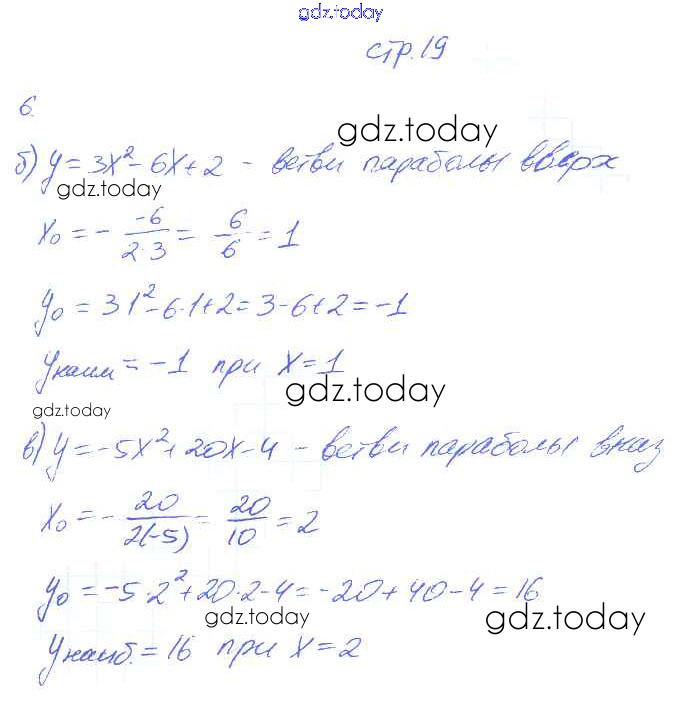 gdz.today
стр.19
6.
gdz.today
б) y = 3x² - 6x + 2 - ветви параболы вверх
gdz.today
x₀ = - -6/2·3 = 6/6 = 1
y₀ = 3 1² - 6·1 + 2 = 3 - 6 + 2 = -1
yнаим = -1 при x = 1
gdz.today
gdz.today
в) y = -5x² + 20x - 4 - ветви параболы вниз
x₀ = - 20/2(-5) = 20/10 = 2
y₀ = -5·2² + 20·2 - 4 = -20 + 40 - 4 = 16
gdz.today
gdz.today
yнаиб. = 16 при x = 2